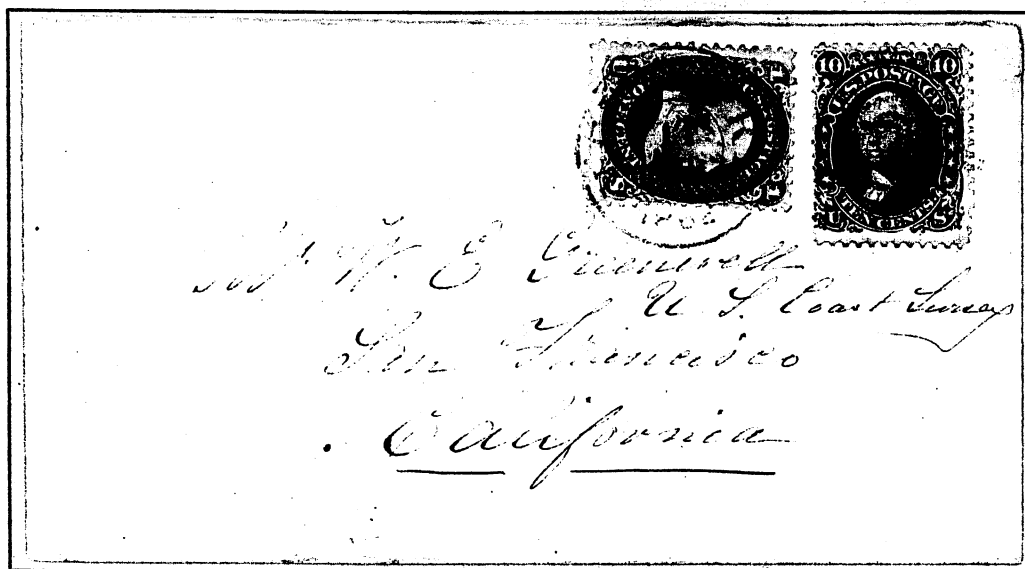 10 10
U.S. POSTAGE
TEN CENTS
U S
W. E. Greenwell
U. S. Coast Survey
San Francisco
California